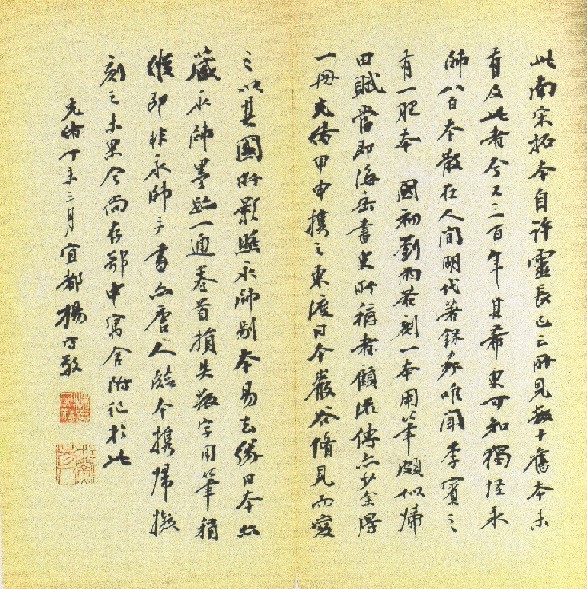 此南宋拓本自許靈長已云所見數十舊本未
有及此者今又三百年其希更可知獨怪永
師八百本散在人間明代著錄家唯聞李賓之
有一肥本 國初劉雨若刻一本用筆頗似歸
田賦當即海岳書史所稱者顧流傳亦少余得
一冊光緒甲申攜之東渡日本嚴谷脩見而愛
之以其國所影照永師別本易去緣日本收
藏永師墨跡一通卷首損失數字用筆稍
縱即非永師手書亦唐人臨本攜歸擬
刻之未果今尚在鄂中寓舍附記於此
光緒丁未三月宜都楊守敬